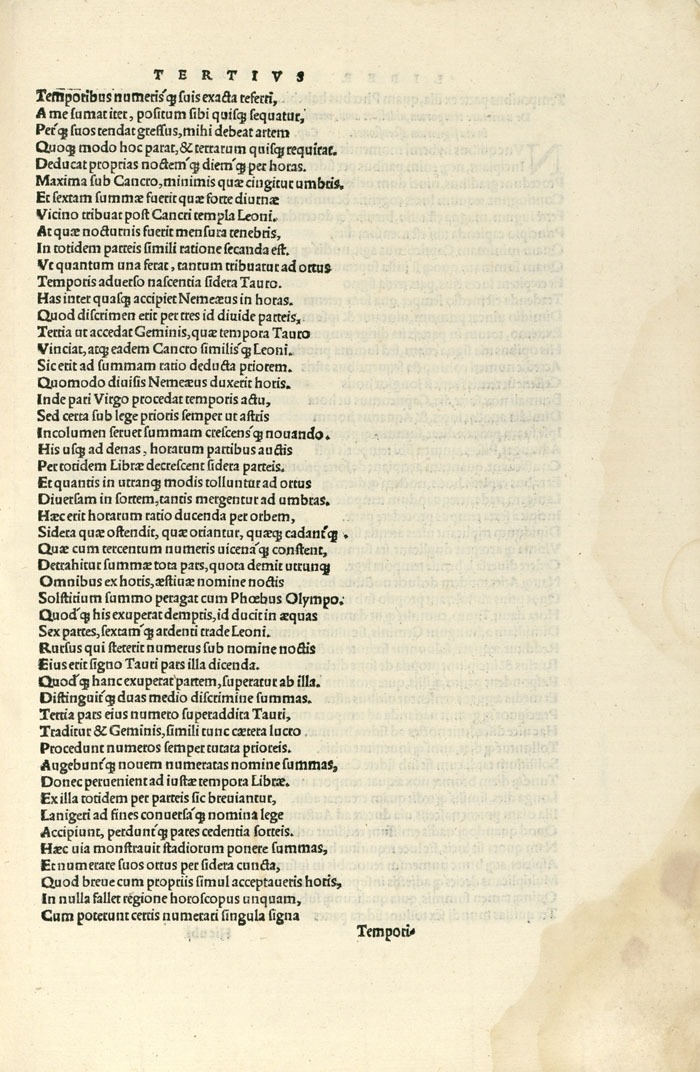 TERTIVS
Temporibus numerisq́ꝫ suis exacta referri,
A me sumat iter, positum sibi quisqꝫ sequatur,
Perq́ꝫ suos tendat gressus, mihi debeat artem
Quoqꝫ modo hoc parat, & terrarum quisqꝫ requirat.
Deducat proprias noctemq́ꝫ diemq́ꝫ per horas.
Maxima sub Cancro, minimis quæ cingitur umbris,
Et sextam summæ fuerit quæ forte diurnæ
Vicino tribuat post Cancri templa Leoni.
At quæ nocturnis fuerit mensura tenebris,
In totidem parteis simili ratione secanda est.
Vt quantum una ferat, tantum tribuatur ad ortus
Temporis aduerso nascentia sidera Tauro.
Has inter quasqꝫ accipiet Nemeæus in horas.
Quod discrimen erit per tres id diuide parteis,
Tertia ut accedat Geminis, quæ tempora Tauro
Vinciat, atqꝫ eadem Cancro similisq́ꝫ Leoni.
Sic erit ad summam ratio deducta priorem.
Quomodo diuisis Nemeæus duxerit horis.
Inde pari Virgo procedat temporis actu,
Sed certa sub lege prioris semper ut astris
Incolumen seruet summam crescensq́ꝫ nouando.
His usqꝫ ad denas, horarum partibus auctis
Per totidem Libræ decrescent sidera parteis.
Et quantis in utranqꝫ modis tolluntur ad ortus
Diuersam in sortem, tantis mergentur ad umbras.
Hæc erit horarum ratio ducenda per orbem,
Sidera quæ ostendit, quæ oriantur, quæqꝫ cadantq́ꝫ.
Quæ cum tercentum numeris uicenaq́ꝫ constent,
Detrahitur summæ tota pars, quota demit utrunqꝫ
Omnibus ex horis, æstiuæ nomine noctis
Solstitium summo peragat cum Phœbus Olympo.
Quodq́ꝫ his exuperat demptis, id ducit in æquas
Sex partes, sextamq́ꝫ ardenti trade Leoni.
Rursus qui steterit numerus sub nomine noctis
Eius erit signo Tauri pars illa dicenda.
Quodq́ꝫ hanc exuperat partem, superatur ab illa.
Distinguitq́ꝫ duas medio discrimine summas.
Tertia pars eius numero superaddita Tauri,
Traditur & Geminis, simili tunc cætera lucro
Procedunt numeros semper tutata prioreis.
Augebuntq́ꝫ nouem numeratas nomine summas,
Donec peruenient ad iustæ tempora Libræ.
Ex illa totidem per parteis sic breuiantur,
Lanigeri ad fines conuersaq́ꝫ nomina lege
Accipiunt, perduntq́ꝫ pares cedentia sorteis.
Hæc uia monstrauit stadiorum ponere summas,
Et numerare suos ortus per sidera cuncta,
Quod breue cum propriis simul acceptaueris horis,
In nulla fallet regione horoscopus unquam,
Cum poterunt certis numerari singula signa
Tempori-